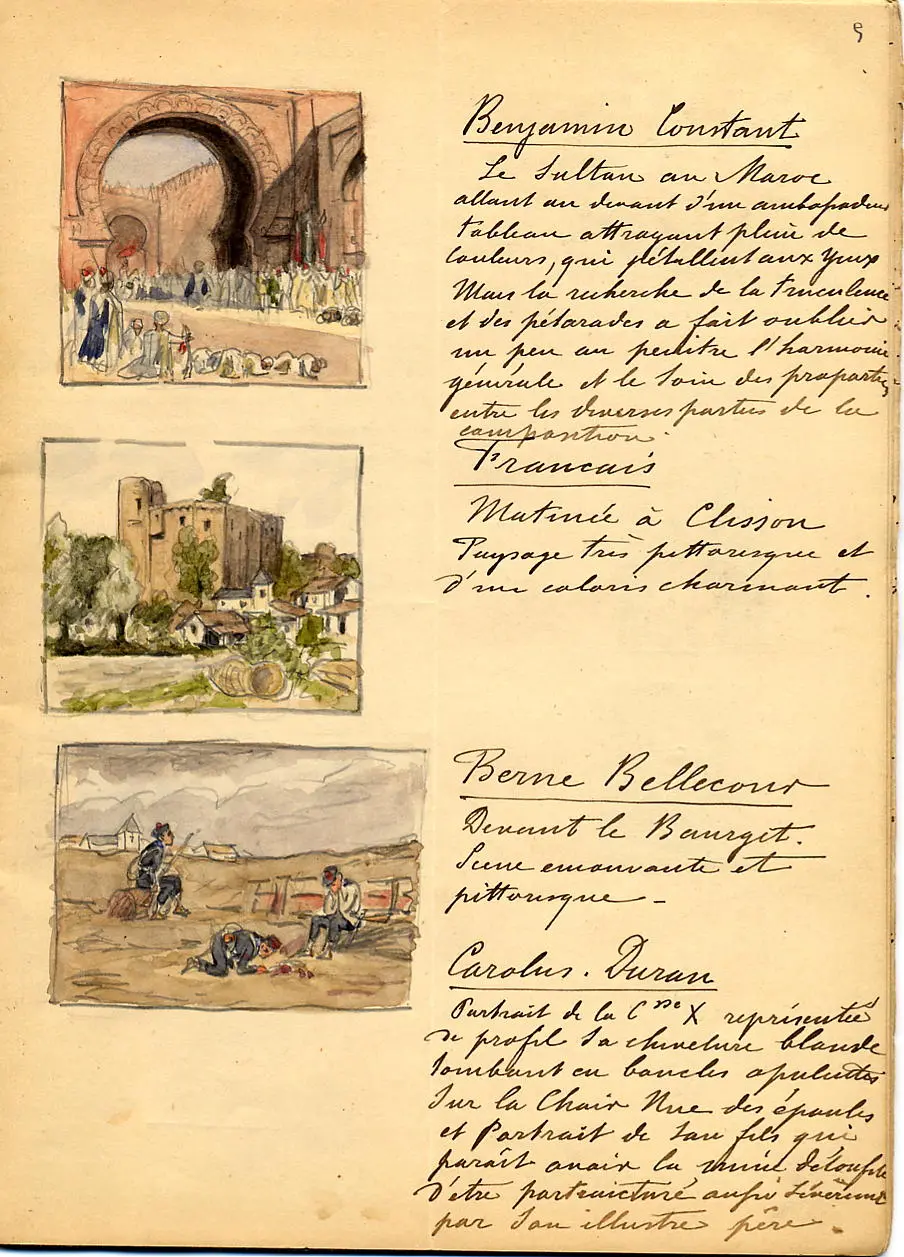 9
Benjamin Constant
Le Sultan au Maroc
allant au devant d'un ambassadeur
tableau attrayant plein de
couleurs, qui pétillent aux yeux
Mais la recherche de la truculence
et des pétarades a fait oublier
un peu au peintre l'harmonie
générale et le soin des proportions
entre les diverses parties de la
composition.
Francais
Matinée à Clisson
Paysage très pittoresque et
d'un coloris charmant.
Berne Bellecour
Devant le Bourget.
Scene emouvante et
pittoresque -
Carolus. Duran
Portrait de la Csse X représentée
de profil sa chevelure blonde
tombant en boucles opulentes
sur la Chair Nue des épaules
et Portrait de son fils qui
paraît avoir la
d'etre portraicturé aussi sévèrement
par son illustre père.